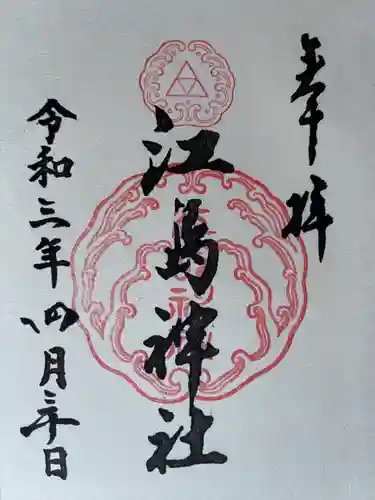 奉拝
江島神社
令和三年四月三十日